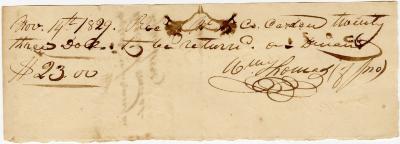 Nov. 19th 1829. Recd Co. Carden twenty
three Dolls. to be returnd. on Demand
$23.00
Wm Thomas (of Jno)